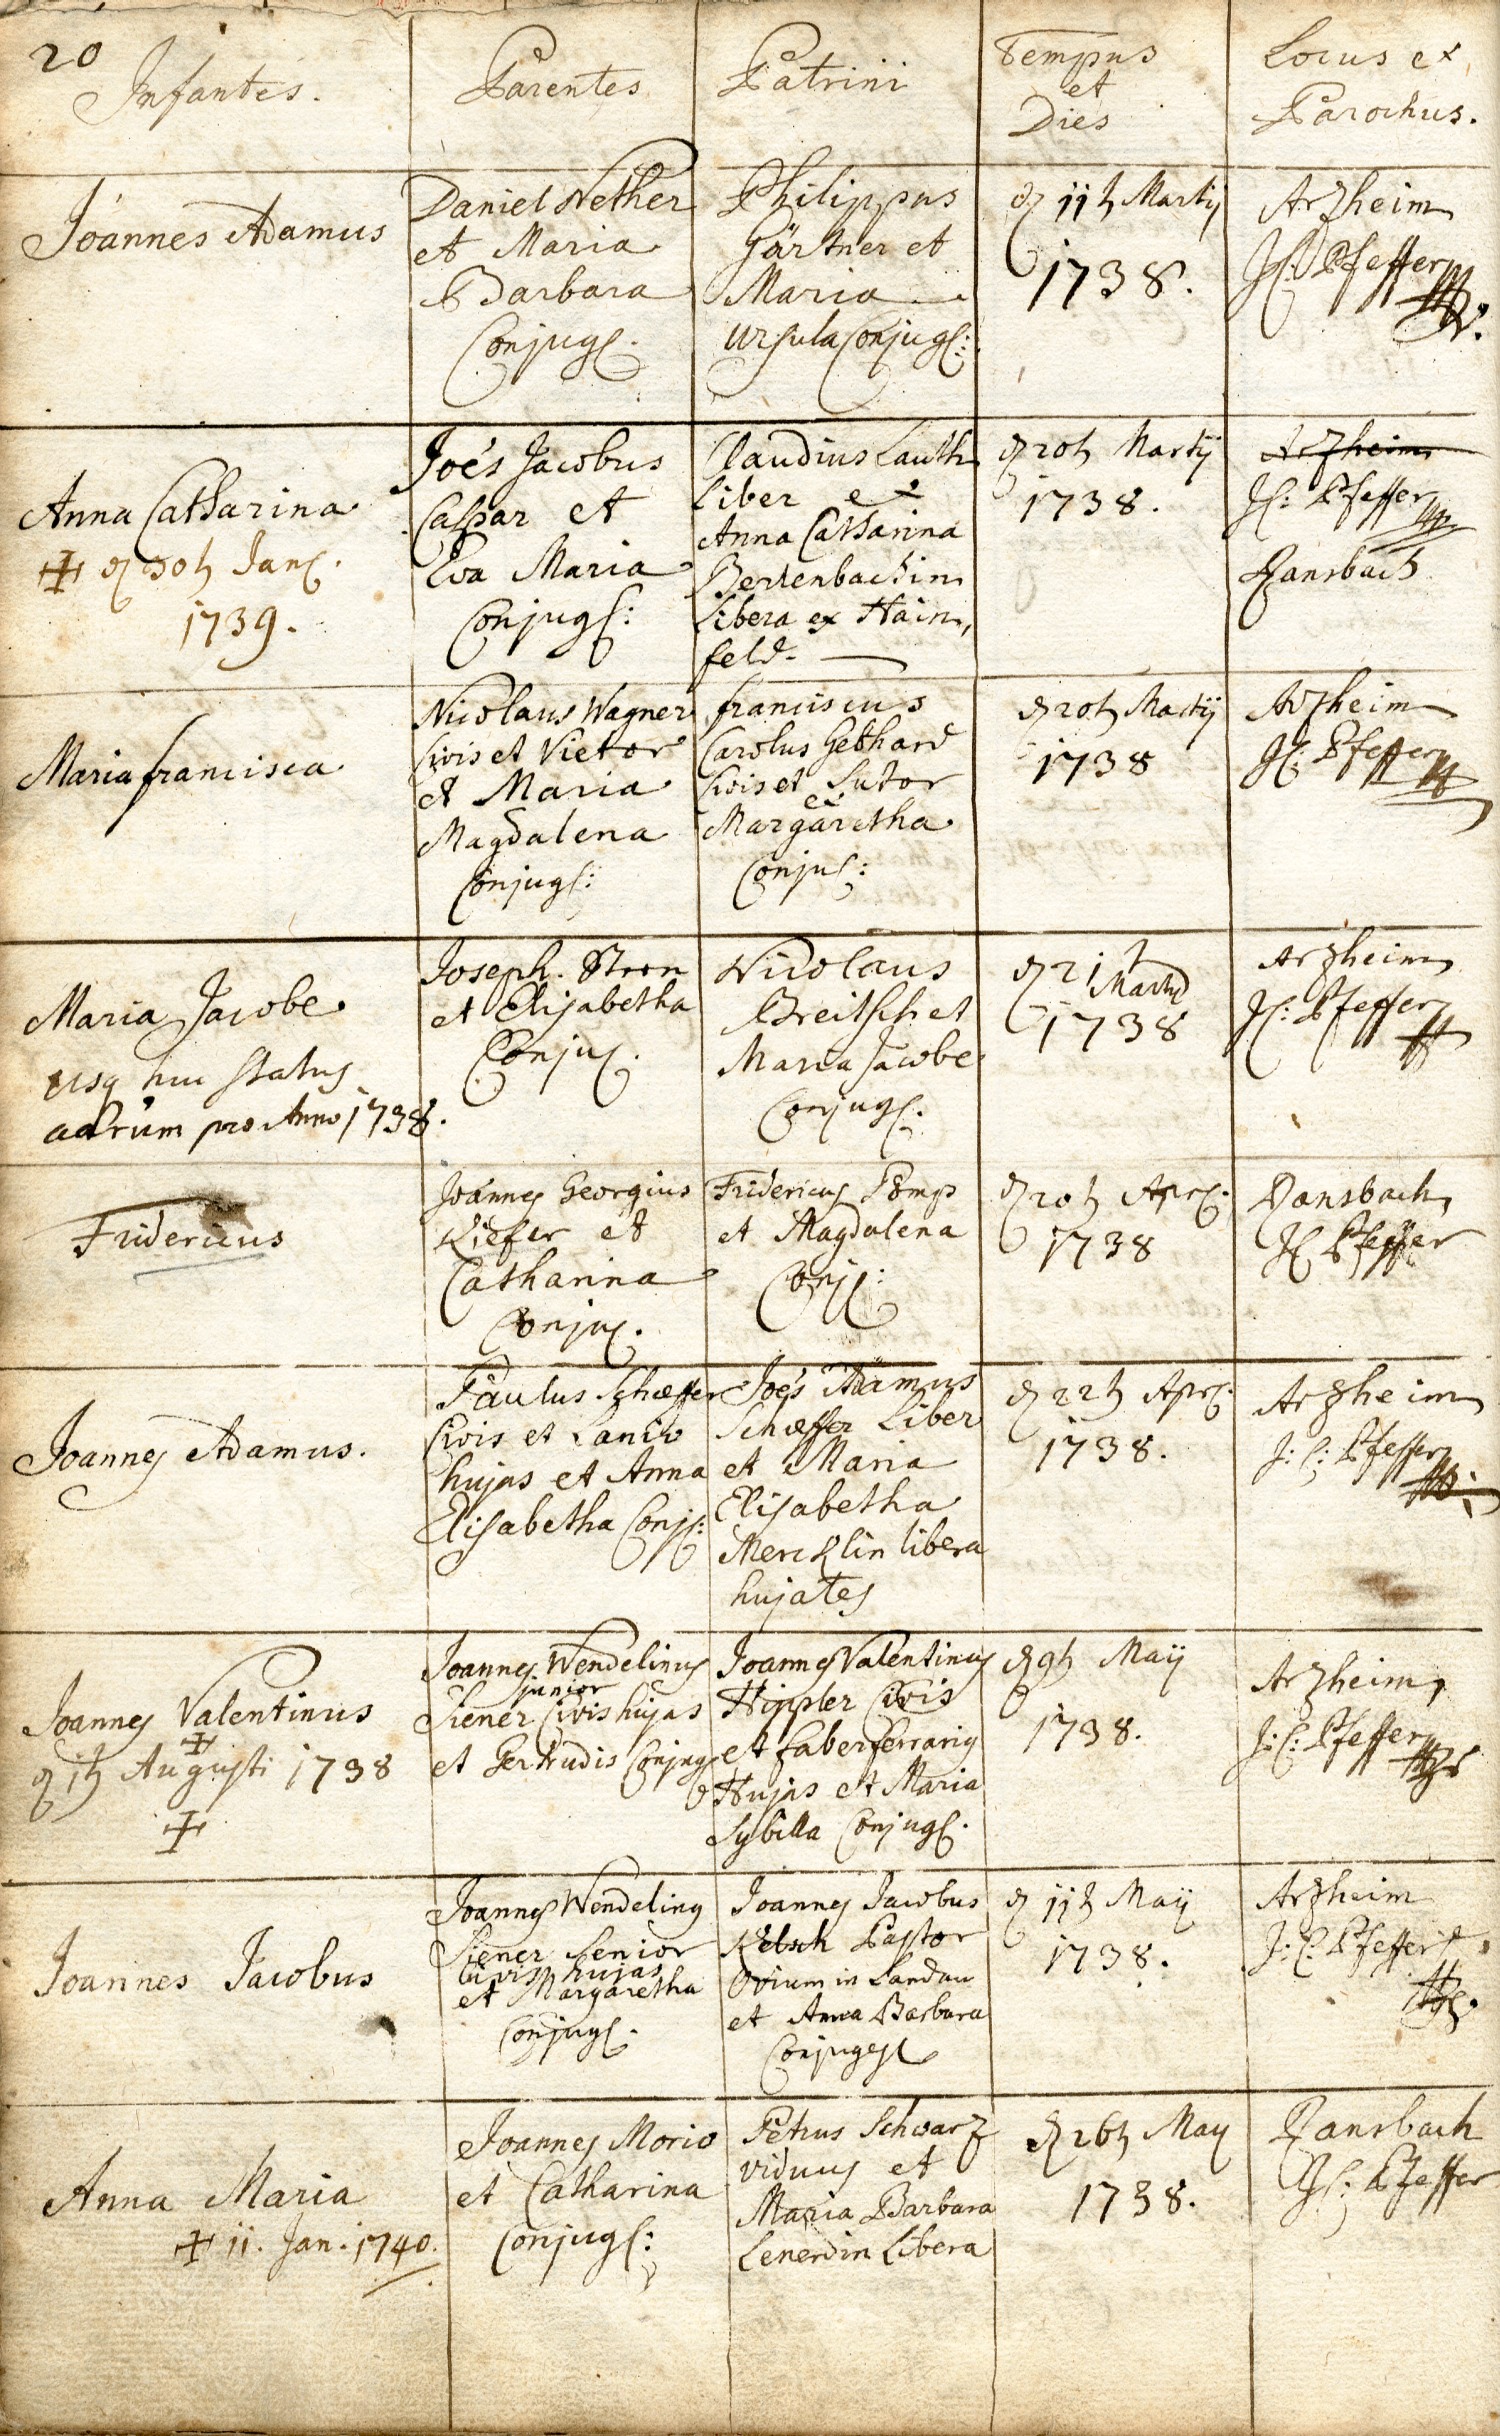 20
Infantes.
Parentes
Patrini
Tempus
et
Dies
Locus et
Parochus.
Joannes Adamus
Daniel Nether
et Maria
Barbara
Conjug.
Philippus
Gärtner et
Maria
Ursula Conjug:
11 Martij
1738.
Arzheim
JC: Pfeffer
Anna Catharina
30 Jan.
1739.
Joes Jacobus
Caspar et
Eva Maria
Conjug:
Claudius Lauth
Liber et
Anna Catharina
Bertenbachin
Libera ex Hain,
feld.
20 Martij
1738.
Arzheim
JC: Pfeffer
Ransbach
Maria francisca
Nicolaus Wagner
Civis et Vietor
et Maria
Magdalena
Conjug:
franciscus
Carolus Gebhard
Civis et Sutor
et
Margaretha
Conju:
20 Martij
1738
Arzheim
JC: Pfeffer
Maria Jacobe
usq huc status
adrum pro Anno 1738.
Joseph. Stern
et Elisabetha
Conju.
Nicolaus
Breitsch et
Maria Jacobe
Conjug.
21
Martij
1738
Arzheim
JC: Pfeffer
Fridericus
Joannes Georgius
Kiefer et
Catharina
Conju.
Fridericus Pomp
et Magdalena
Conj:
20 Apr.
1738
Ransbach
JC Pfeffer
Joannes Adamus.
Paulus Schæffer
Civis et Lanio
hujas et Anna
Elisabetha Conj:
Joes Adamus
Schæffer Liber
et Maria
Elisabetha
Mercklin libera
hujates
22 Apr.
1738.
Arzheim
J: C: Pfeffer
Joannes Valentinus
1 Augusti 1738
Joannes Wendelinus
junior
Siener Civis hujas
et Gertrudis Conjug
Joannes Valentinus
Hippler Civis
et faber ferrarius
Hujas et Maria
Sybilla Conjug.
9 Maij
1738.
Arzheim,
J: C: Pfeffer
Joannes Jacobus
Joannes Wendelinus
Siener Senior
Civis hujas
et Margaretha
Conjug.
Joannes Jacobus
Ketsch Pastor
Ovium in Landau
et Anna Barbara
Conjuges
11 Maij
1738.
Arzheim
J: C: Pfeffer
Anna Maria
11. Jan. 1740.
Joannes Morio
et Catharina
Conjug:
Petrus Schwarz
viduus et
Maria Barbara
Lenerdin Libera
26 May
1738.
Ransbach
JC: Pfeffer